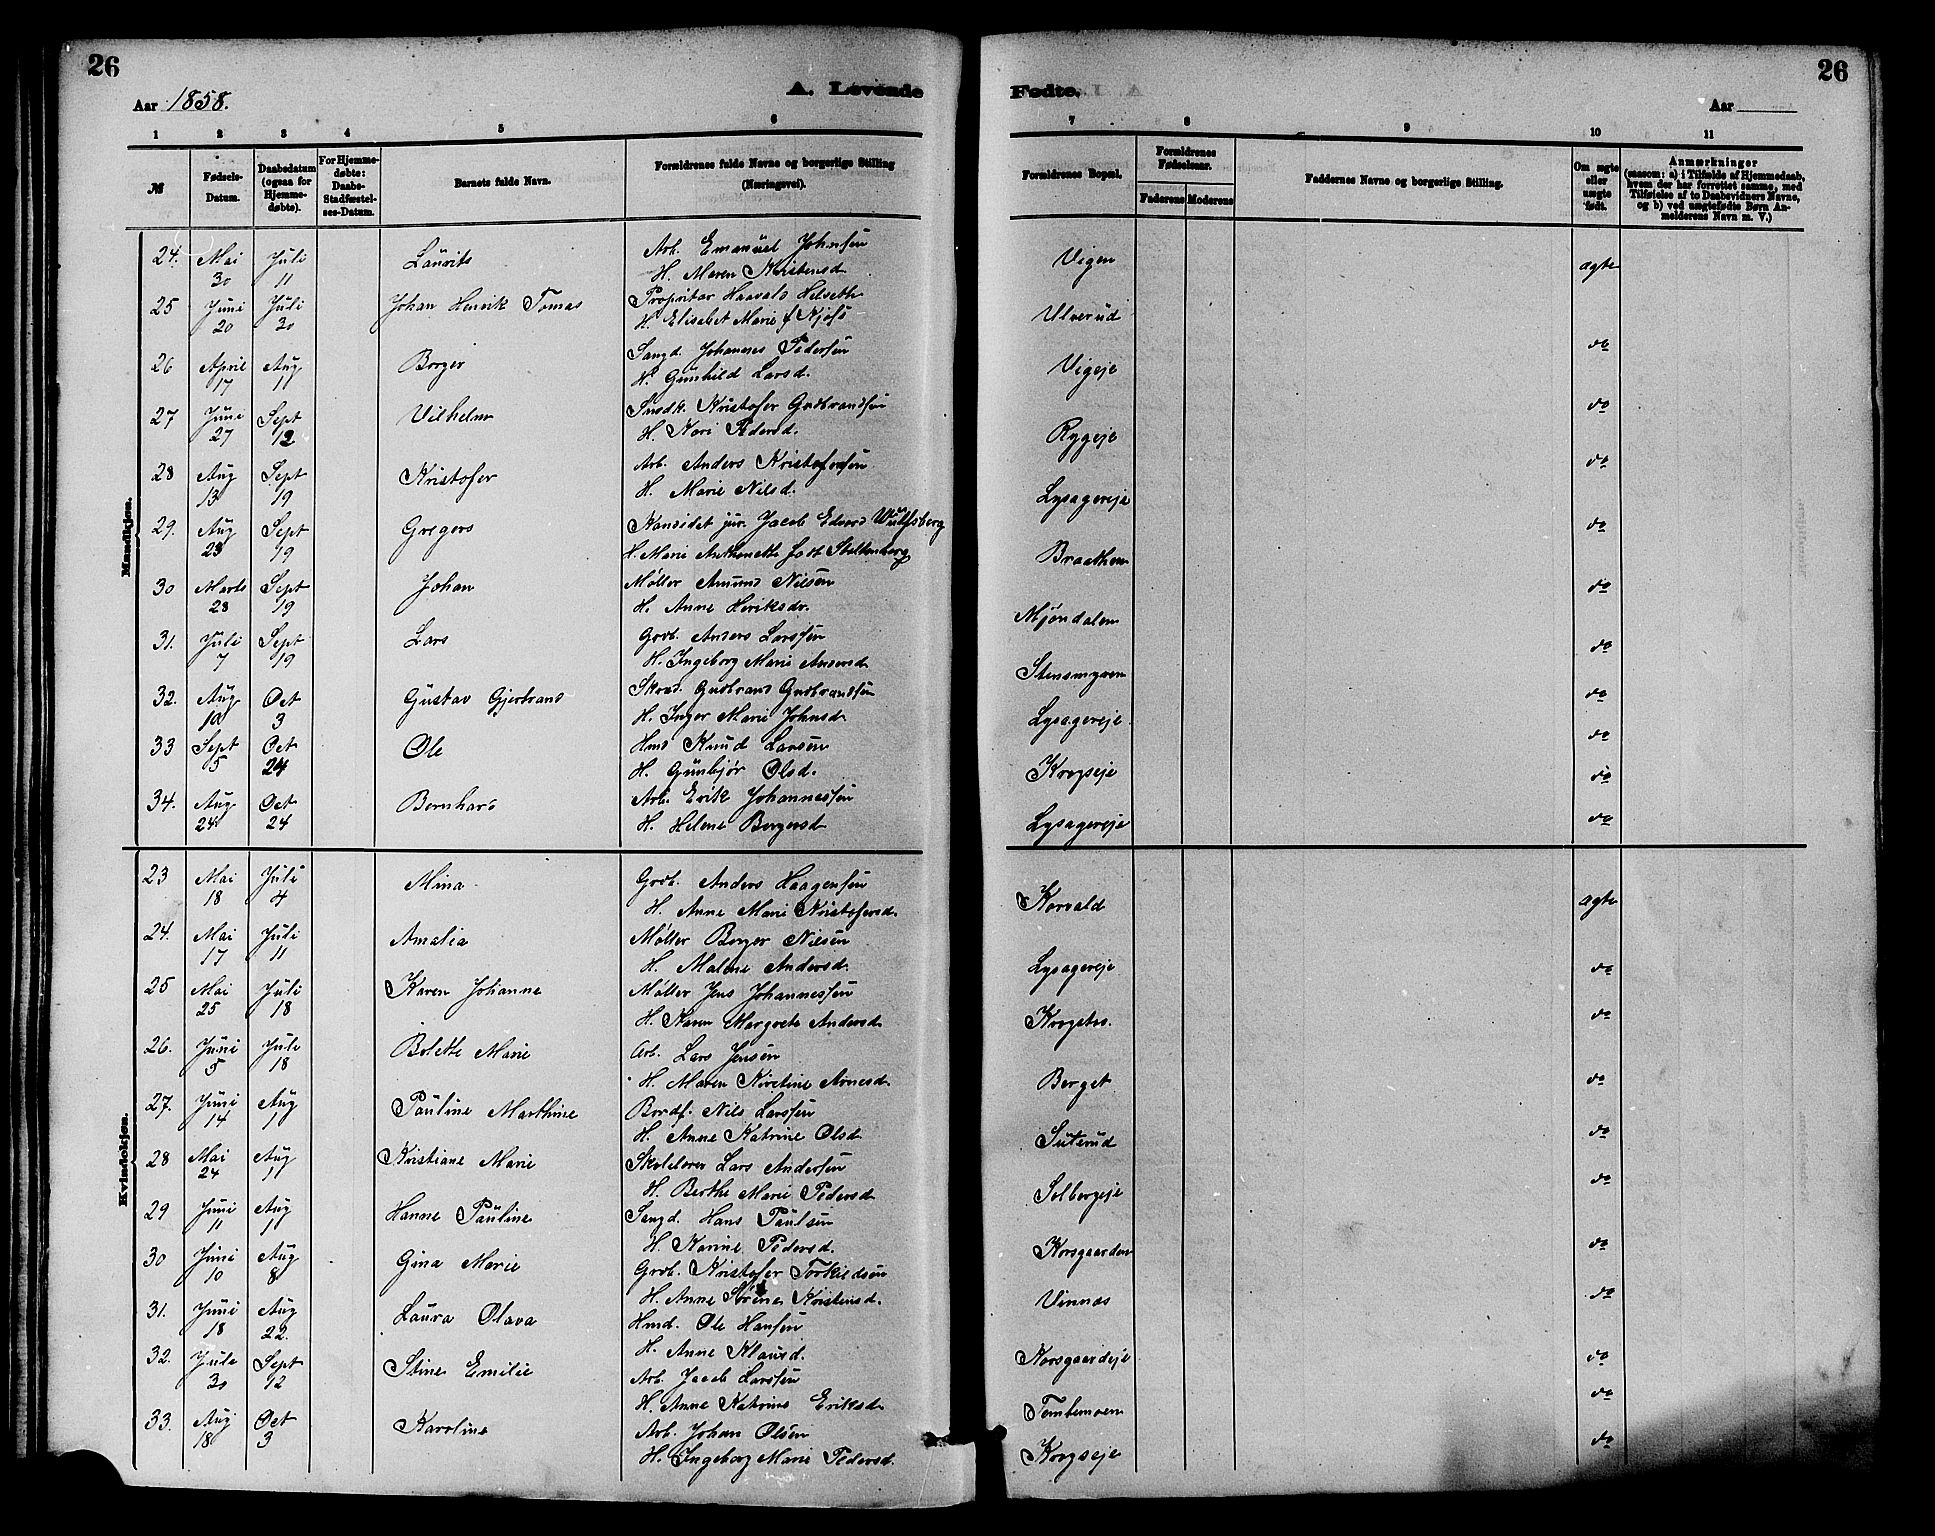 26
Aar 1858.
A. Levende
1 2 3 4 5 6
№ Fødsels-Datum. Daabsdatum (ogsaa for Hjemmedøbte). For Hjemmedøbte: Daabs-Stadfæstelses-Datum. Barnets fulde Navn. Forældrenes fulde Navne og borgerlige Stilling (Næringsvei).
Mandkjøn.
24. Mai 30 Juli 11 Laurits Arb. Emanuel Johnsen
H. Maren Kristensd.
25 Juni 20 Juli 30 Johan Henrik Tomas Propritær Haavald Helseth
H. Elisabet Marie f Kjøsø
26 April 17 Aug 11 Borger Sangd. Johannes Pedersen
H. Gunhild Larsd.
27 Juni 27 Sept 12 Vilhelm Snedk. Kristofer Gudbrandsen
H. Kari Pedersd.
28 Aug 13 Sept 19 Kristofer Arb. Anders Kristofersen
H. Marie Nilsd.
29. Aug 23 Sept 19 Gregers Kandidat jur. Jacob Edvard Wulfsberg
H. Marie Anthonette født Stoltenberg
30 Marts 28 Sept 19 Johan Møller Amund Nilsen
H. Anne Heriksdr.
31. Juli 7 Sept 19 Lars Grdb. Anders Larssen
H. Ingeborg Marie Andersd
32. Aug 10 Oct 3 Gustav Gjerbrand Skræd. Gudbrand Gudbrandsen
H. Inger Marie Johnsd
33 Sept 5 Oct 24 Ole Hmd Knud Larsen
H. Gunbjør Olsd.
34. Aug 24 Oct 24 Bernhard Arb. Erik Johannessen
H. Helene Borgersd
Kvindekjøn.
23 Mai 18 Juli 4 Mina Grdb. Anders Haagensen
H. Anne Marie Kristofersd.
24. Mai 17 Juli 11 Amalia Møller Borger Nilsen
H. Malene Andersd.
25 Mai 25 Juli 18 Karen Johanne Møller Jens Johannessen
H. Karen Margrete Andersd
26. Juni 5 Juli 18 Bolette Marie Arb. Lars Jensen
H. Maren Kirstine Arnesd.
27. Juni 14 Aug 11 Pauline Marthine Bordf. Nils Larssen
H. Anne Katrine Olsd
28 Mai 24 Aug 11 Kristiane Marie Skolelærer Lars Andersen
H. Berthe Marie Pedersd
29 Juni 11 Aug 11 Hanne Pauline Sangd. Hans Paulsen
H. Karine Pedersd.
30 Juni 10 Aug 8 Gina Marie Grdb. Kristofer Torkildsen
H. Anne Sørine Kristensd.
31. Juni 18 Aug 22. Laura Olava Hmd. Ole Hansen
H. Anne Klausd.
32. Juli 30 Sept 12 Stine Emilie Arb. Jacob Larssen
H. Anne Katrine Eriksd
33. Aug 18 Oct 3 Karoline Arb. Johan Olsen
H. Ingeborg Marie Pedersd.
26
Fødte.
Aar
7 8 9 10 11
Forældrenes Bopæl. Forældrenes Fødselsaar. Faderens Moderens Faddernes Navne og borgerlige Stilling. Om ægte eller uægte født. Anmærkninger (saasom: a) i Tilfælde af Hjemmedaab, hvem der har forrettet samme, med Tilføielse af to Daabsvidners Navne, og b) ved uægtefødte Børn Anmelderens Navn m. V.)
Vigen ægte
Ulverud do
Vigeje do
Rygeje do
Lysagereje do
Braathen do
Mjøndalen do
Stensmyren do
Lysagereje do
Krogseje do
Lysagereje do
Korvald ægte
Lysagereje do
Krogstad. do
Berget do
Suterud do
Solbergeje do
Korsgaarden do
Vinnæs do
Korsgaardeje do
Tomtemoen do
Krogseje do